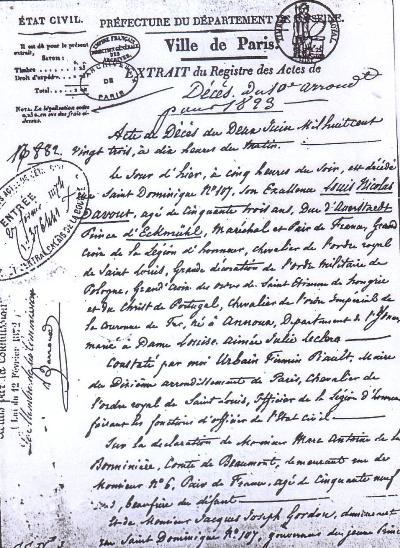 ÉTAT CIVIL.
PRÉFECTURE DU DÉPARTEMENT DE LA SEINE.
Il est dû pour le présent
extrait,
Savoir :
Timbre
Droit d'expéd.
Total
Ville de Paris.
ARCHIVES
DE
PARIS
EXTRAIT du Registre des Actes de
Décès du 10e arrondt
pour 1823
Nota. La légalisation
Acte de Décès du Deux Juin Mil huit cent
vingt trois, à dix heures du matin.
Le Jour d'hier, à cinq heures du soir, est décédé
rue Saint Dominique No 107, Son Excellence Louis Nicolas
Davout, agé de Cinquante trois ans, Duc d'Averstaedt
Prince d'Eckmühl, Maréchal et Pair de France, Grand
Croix de la Légion d'honneur, Chevalier de l'ordre royal
de Saint Louis, Grande décoration de l'ordre Militaire de
Pologne, Grand'Croix des ordres de Saint Etienne de hongrie
et du Christ de Portugal, Chevalier de l'ordre Impérial de
la Couronne de Fer, né à Annoux, Département de l'Yonne,
marié à Dame Louise Aimée Julie Leclerc
Constaté par moi Urbain Firmin Piault, Maire
du Dixième arrondissement de Paris, Chevalier de
l'ordre royal de Saint-Louis, Officier de la Légion d'honneur
faisant les fonctions d'officier de l'Etat Civil
Sur la déclaration de Monsieur Marc Antoine de la
Bonninière, Comte de Beaumont, demeurant rue de
Monsieur No 6, Pair de France, agé de Cinquante neuf
ans, beaufrère du défunt
Et de Monsieur Jacques Joseph Gordon, demeurant
rue Saint Dominique No 107, gouverneur du jeune Prince
ENTRÉE
Loi du 12 Février 1872